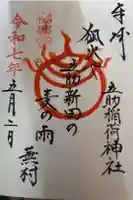 奉拝
五助稲荷神社
狐火や
五助新田の
麦の雨
蕪村
令和七年
五月二日